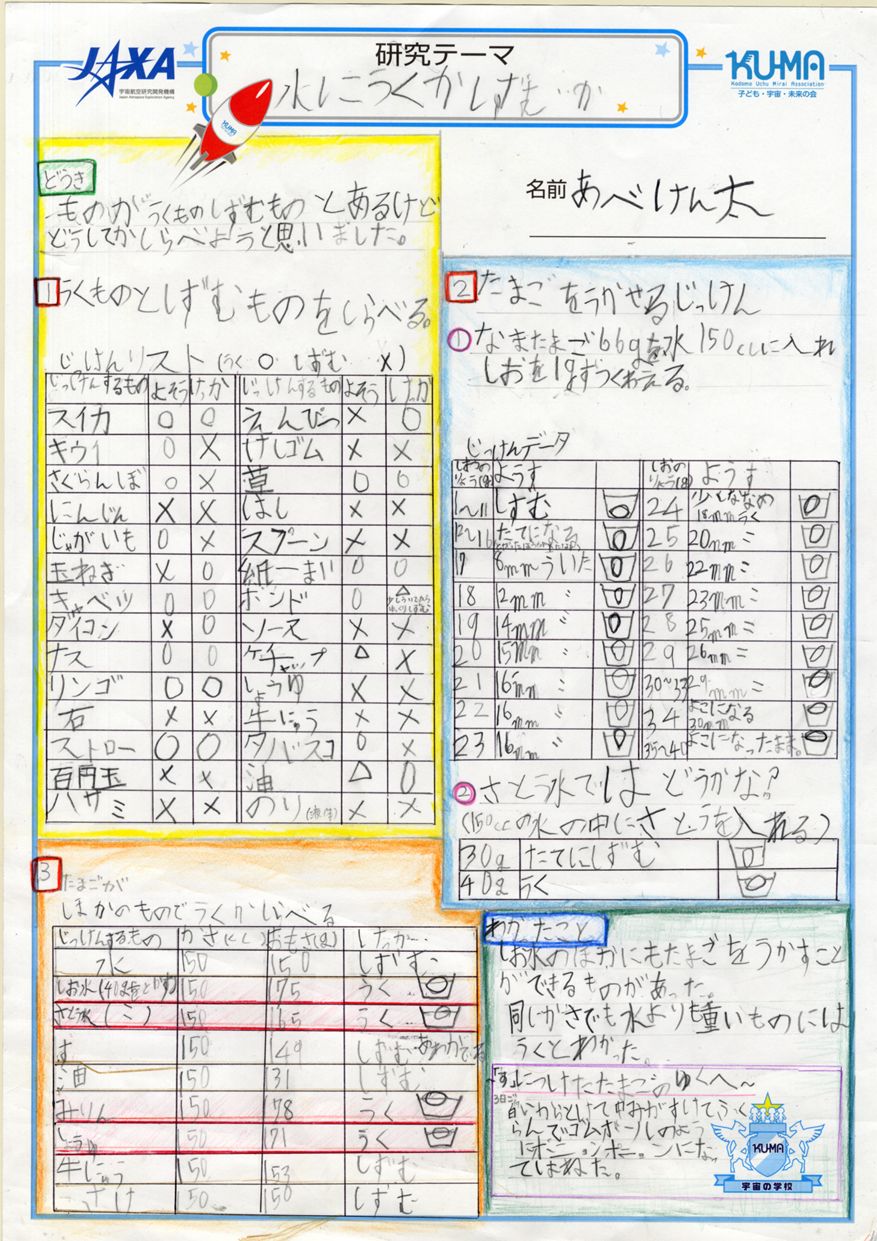 JAXA
宇宙航空研究開発機構
Japan Aerospace Exploration Agency
研究テーマ
水にうくかしずむか
KU-MA
Kodomo Uchu Mirai Association
子ども・宇宙・未来の会
KU-MA
名前 あべけん太
どうき
ものがうくものしずむものとあるけど
どうしてかしらべようと思いました。
1 うくものとしずむものをしらべる。
じっけんリスト (うく ○ しずむ ×)
じっけんするもの よそう けっか じっけんするもの よそう けっか
スイカ ○ ○ えんぴつ × ○
キウイ ○ × けしゴム × ×
さくらんぼ ○ × 草 ○ ○
にんじん × × はし × ×
じゃがいも ○ × スプーン × ×
玉ねぎ × ○ 紙一まい ○ ○
キャベツ ○ ○ ボンド ○ △
ダイコン × ○ ソース × ×
ナス ○ ○ ケチャップ △ ×
リンゴ ○ ○ しょうゆ × ×
石 × × 牛にゅう × ×
ストロー ○ ○ タバスコ ○ ×
百円玉 × × 油 △ ○
ハサミ × × のり(液体) × ×
2 たまごをうかせるじっけん
① なまたまご66gを水150ccに入れ
しおを1gずつくわえる。
じっけんデータ
しおのりょう(g) ようす しおのりょう(g) ようす
1〜11 しずむ 24 少しななめ 18mmうく
12〜16 たてになる 25 20mm 〃
17 8mmういた 26 22mm 〃
18 12mm 〃 27 23mm 〃
19 14mm 〃 28 25mm 〃
20 15mm 〃 29 26mm 〃
21 16mm 〃 30〜33 29mm 〃
22 16mm 〃 34 よこになる 30mm
23 16mm 〃 35〜40 よこになったまま。
② さとう水ではどうかな?
(150ccの水の中にさとうを入れる)
30g たてにしずむ
40g うく
3 たまごが
ほかのものでうくかしらべる
じっけんするもの かさ(cc) おもさ(g) けっか
水 150 150 しずむ
しお水(40gをとかす) 150 175 うく
さとう水(〃) 150 165 うく
す 150 149 しずむ あわがでる
油 150 131 しずむ
みりん 150 178 うく
しょうゆ 150 171 うく
牛にゅう 150 153 しずむ
さけ 150 150 しずむ
わかったこと
しお水のほかにもたまごをうかすこと
ができるものがあった。
同じかさでも水よりも重いものには
うくとわかった。
〜「す」につけたたまごのゆくへ〜
3日ご
白いからとけて中みがすけてうく
らんでゴムボールのよう
にポニョンポニョンになっ
てはねた。
KU-MA
宇宙の学校